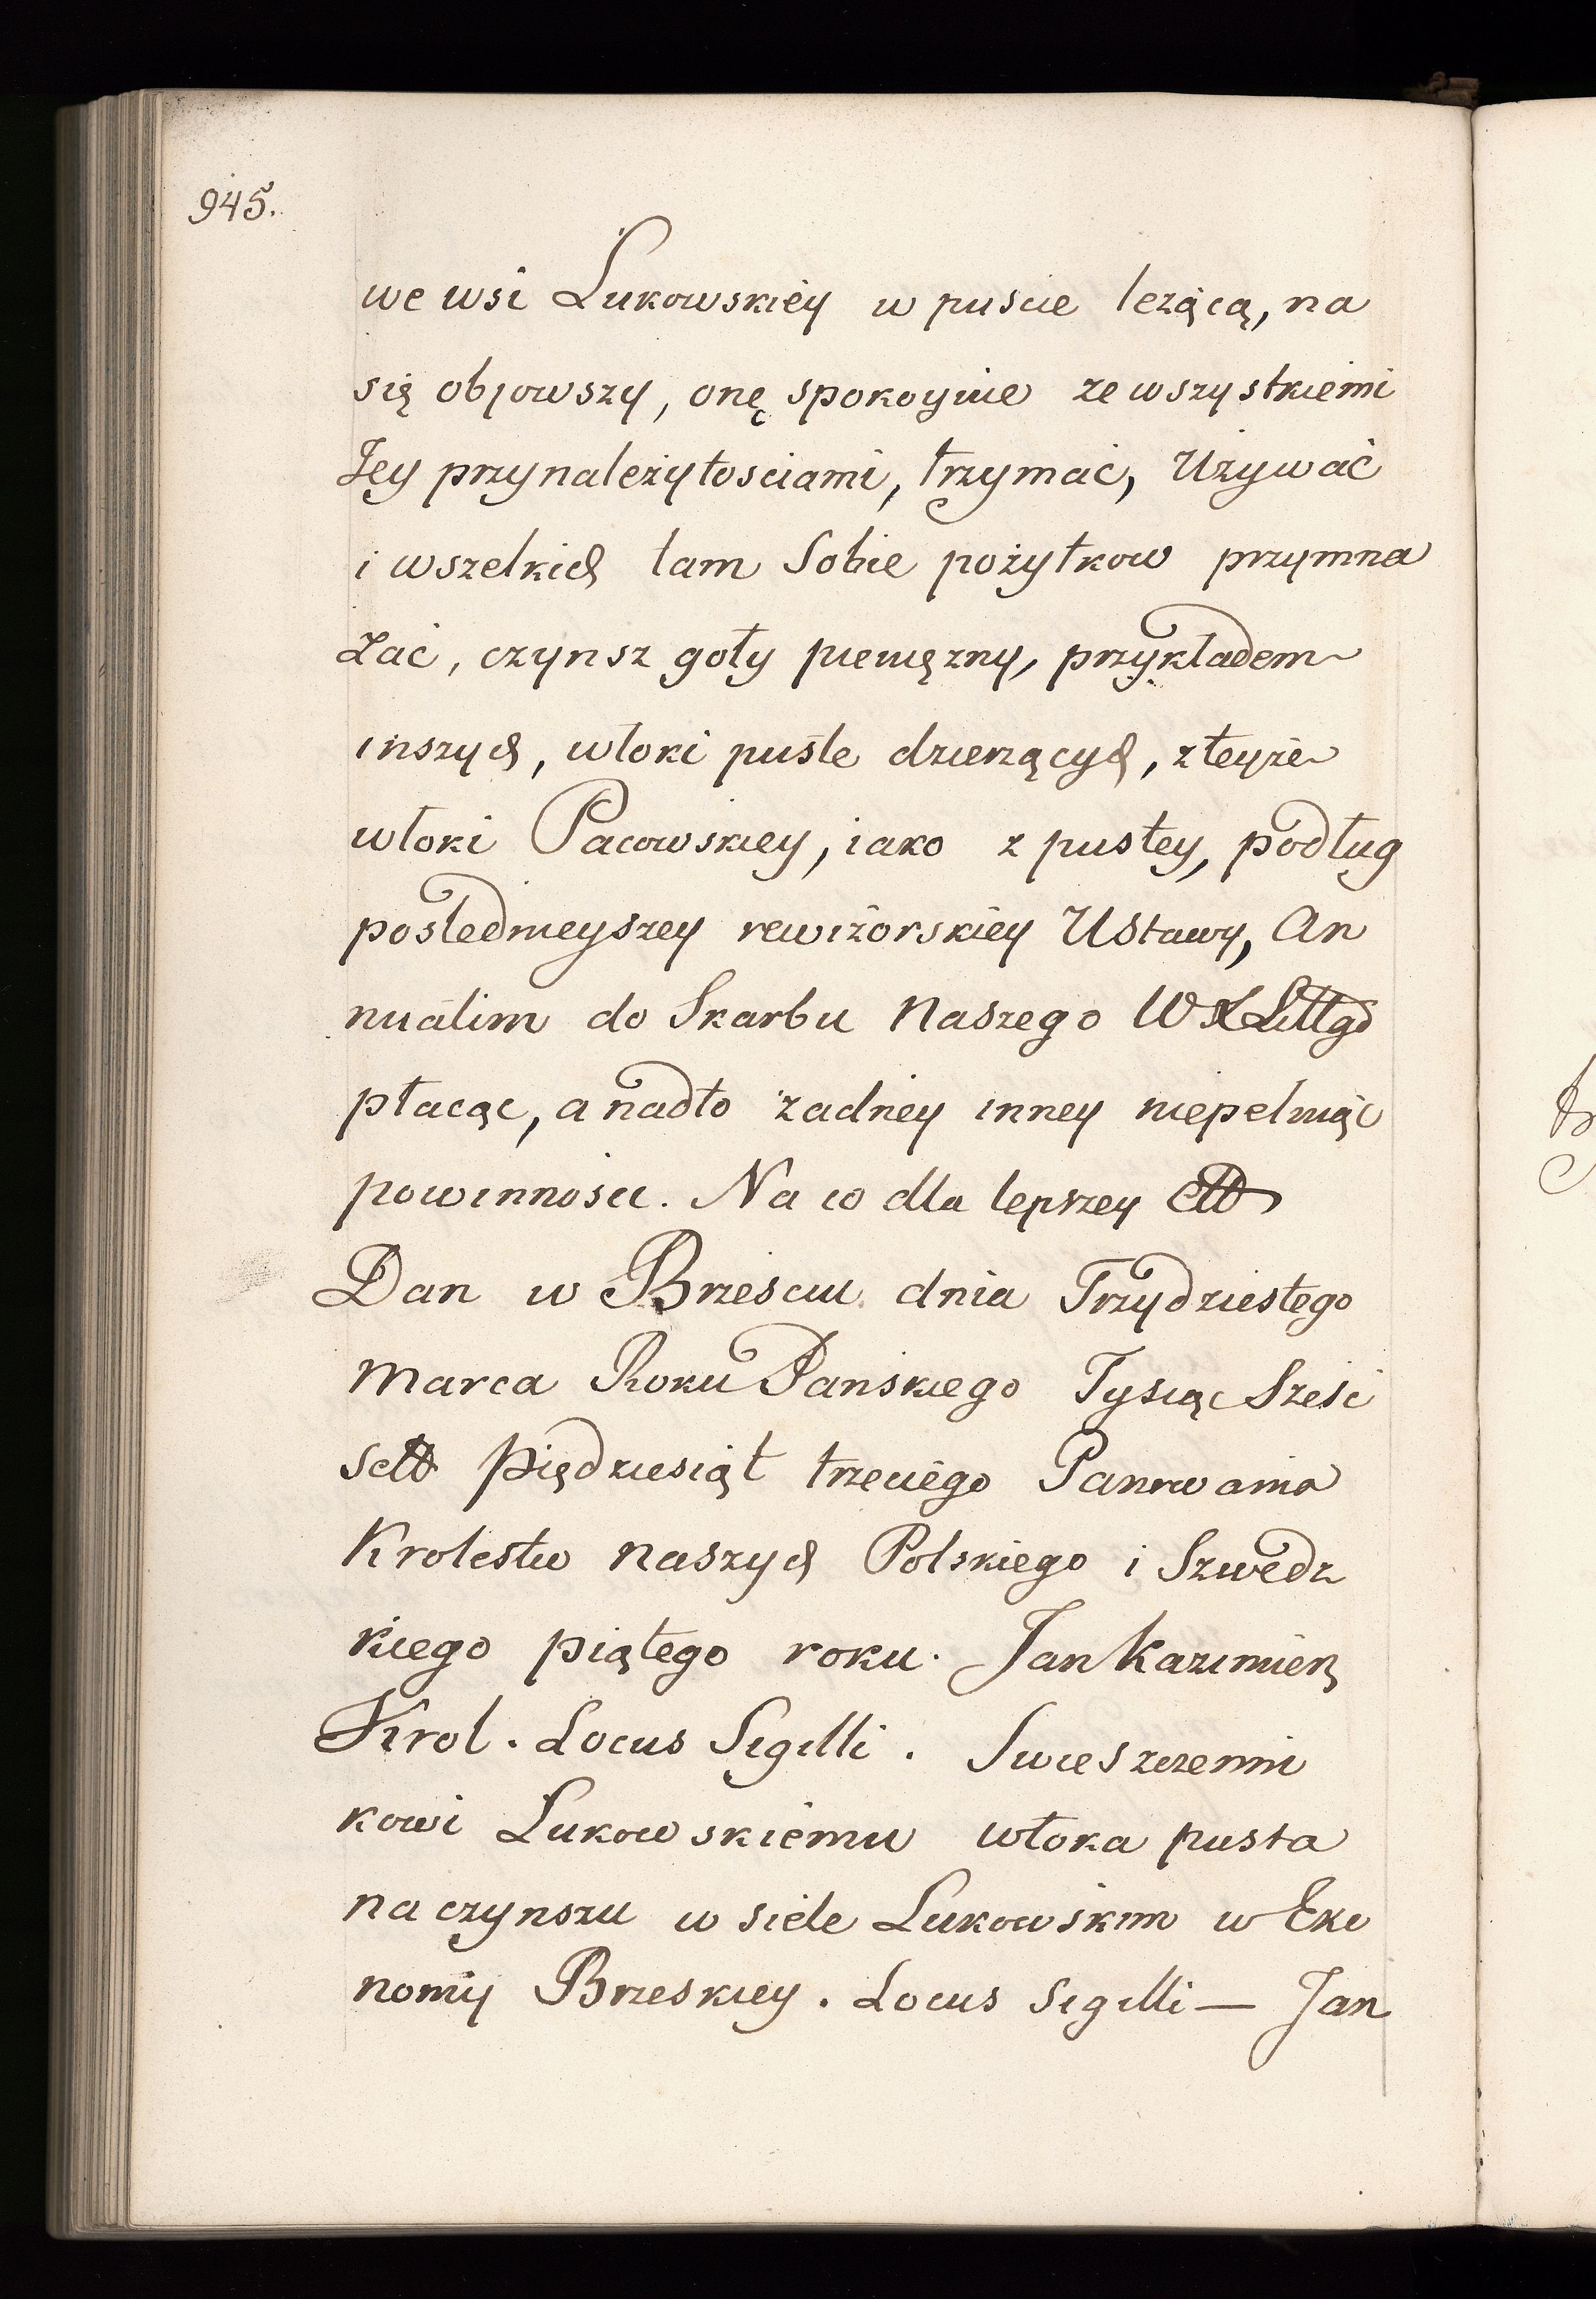 945.
we wsi Lukowskiey w puscie leżącą, na
się objowszy, onę spokoynie ze wszystkiemi
Jey przynależytosciami, trzymać, Używać
i wszelkich tam Sobie pożytkow przymna
żać, czynsz goły pienięzny, przykładem
inszych, włoki puste dzierżących, z teyże
włoki Pacowskiey, iako z pustey, podług
poslednieyszey rewizorskiey Ustawy, An
nuatim do Skarbu Naszego W X Littgo
płacąc, a nadto żadney inney niepełniąc
powinności. Na co dla lepszey ett
Dan w Brzesciu dnia Trzydziestego
Marca Roku Pańskiego Tysiąc Sześć
sett Piędziesiąt trzeciego Panowania
Krolestw naszych Polskiego i Szwedz
kiego piątego roku. Jan Kazimierz
Krol. Locus Sigilli. Swieszczenni
kowi Lukowskiemu włoka pusta
na czynszu w siele Lukowskim w Eko
nomiy Brzeskiey. Locus Sigilli — Jan